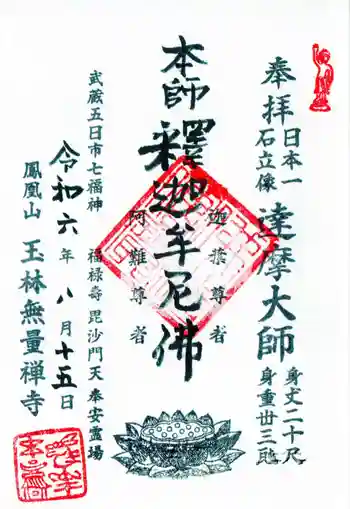 奉拝
日本一
石立像
達摩大師
身丈二十尺
身重丗三瓲
本師釋迦牟尼佛
迦葉尊者
阿難尊者
武蔵五日市七福神 福禄壽 毘沙門天 奉安霊場
令和六年八月十五日
鳳凰山 玉林無量禅寺